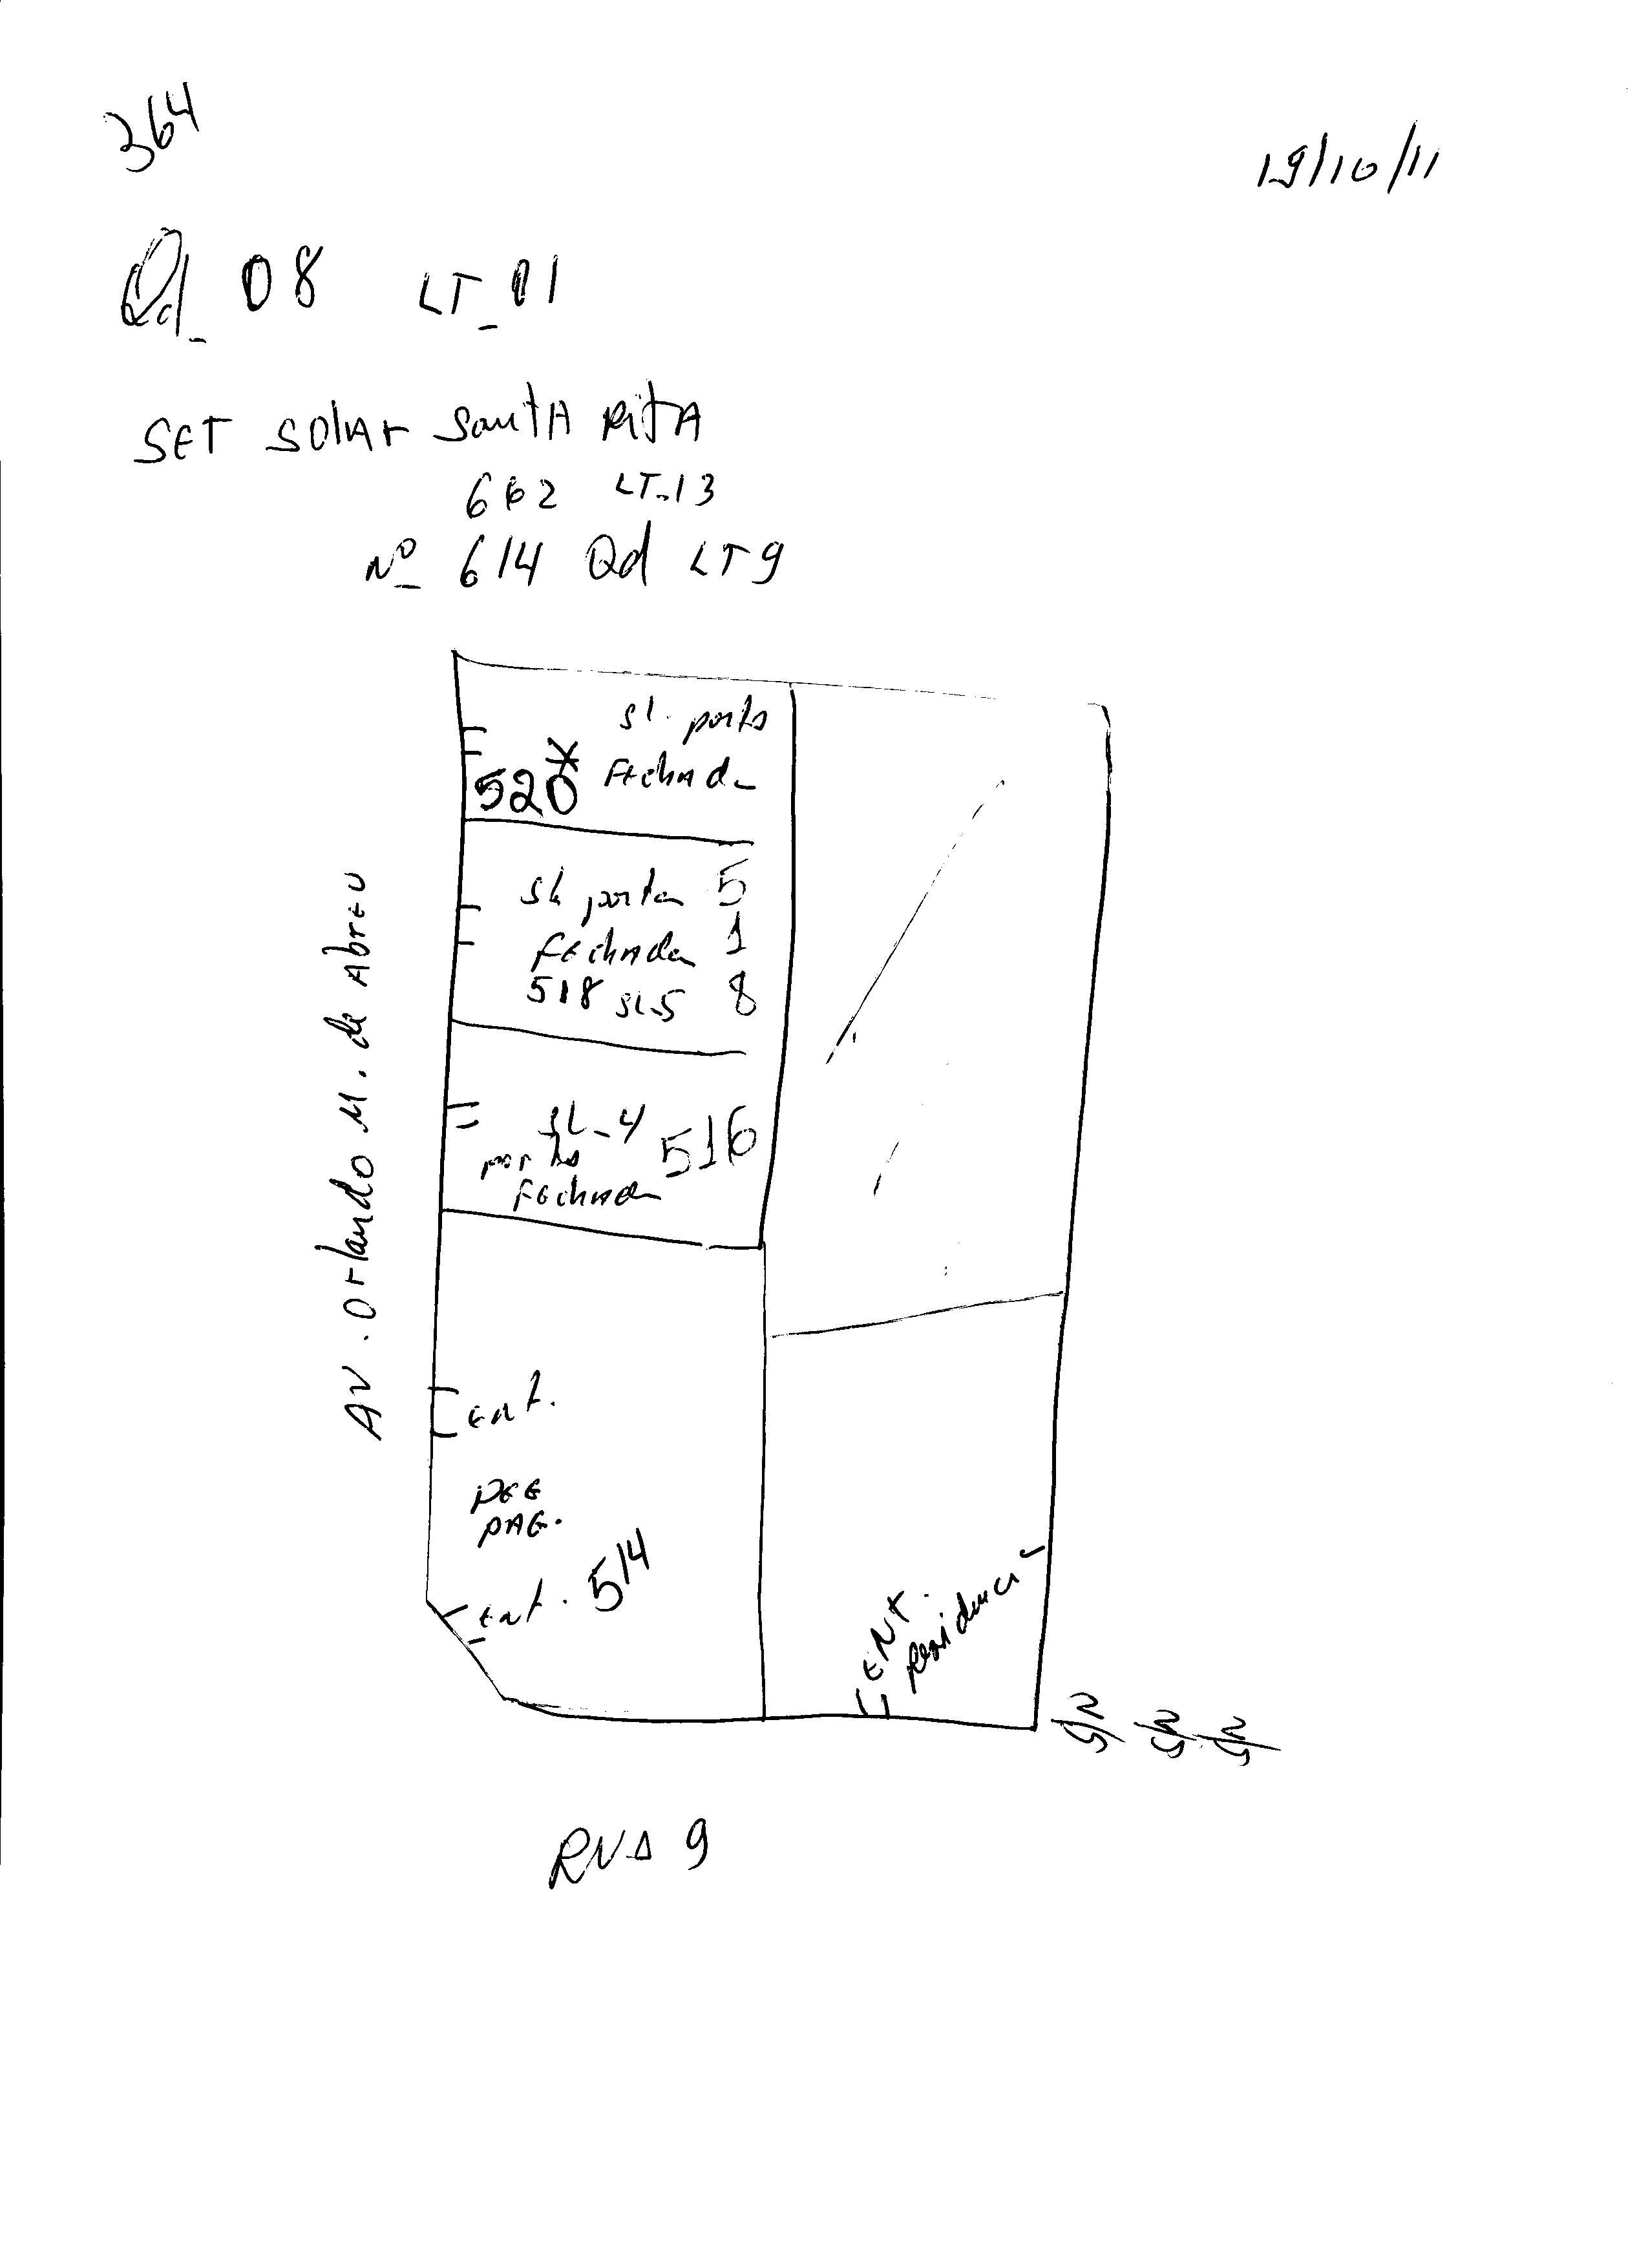 364
19/10/11
Qd_ 08 LT_01
SET SOLAr SantA RitA
662 LT-13
Nº 614 Qd LT 9
SL. porta
FEchada
520
SL porta 5
FEchada 1
518 SL5 8
SL_4
porta 516
FEchada
AV. Orlando M. de Abreu
Ent.
PEG
PAG.
Ent. 514
ENt.
Residencia
RUA 9